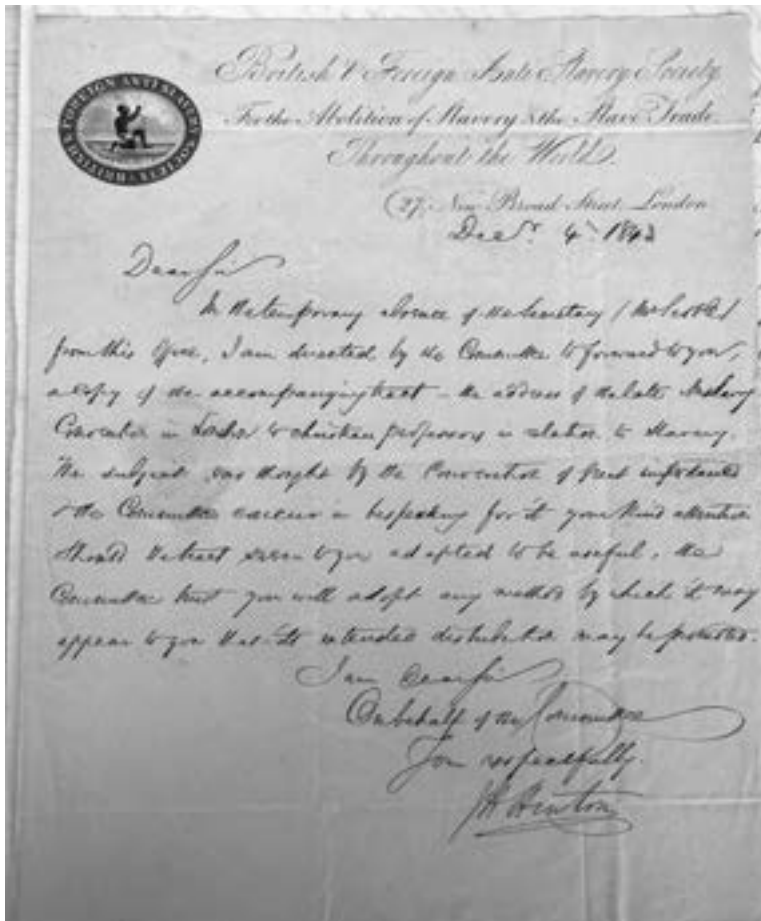 BRITISH & FOREIGN ANTI-SLAVERY SOCIETY
British & Foreign Anti-Slavery Society
For the Abolition of Slavery & the Slave Trade
Throughout the World.
27, New Broad Street, London
Decr. 4 1843
Dear Sir
In the temporary absence of the Secretary
from this Office, I am directed by the Committee to forward to you,
a copy of the accompanying tract - the address of the late
Convention in London to christian professors in relation to Slavery.
The subject was thought by the Convention of great importance
& the Committee concur in bespeaking for it your kind attention
Should the tract seem to you adapted to be useful, the
Committee trust you will adopt any method by which it may
appear to you that its extended distribution may be promoted.
I am dear Sir
On behalf of the Committee
Your respectfully.
J H Hinton